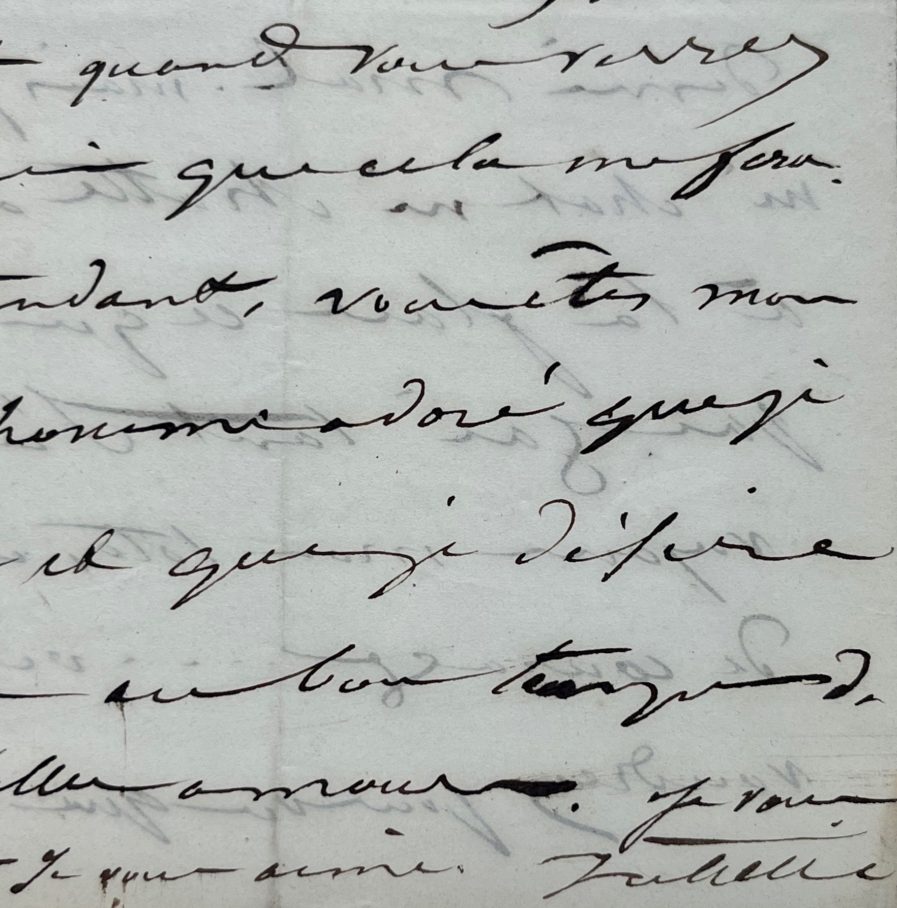 quand vous verrez
que cela me fera
ndant, vous êtes mon
homme adoré que je
et que je désire
au bon temps d
amour. Je vous
Je vous aime.